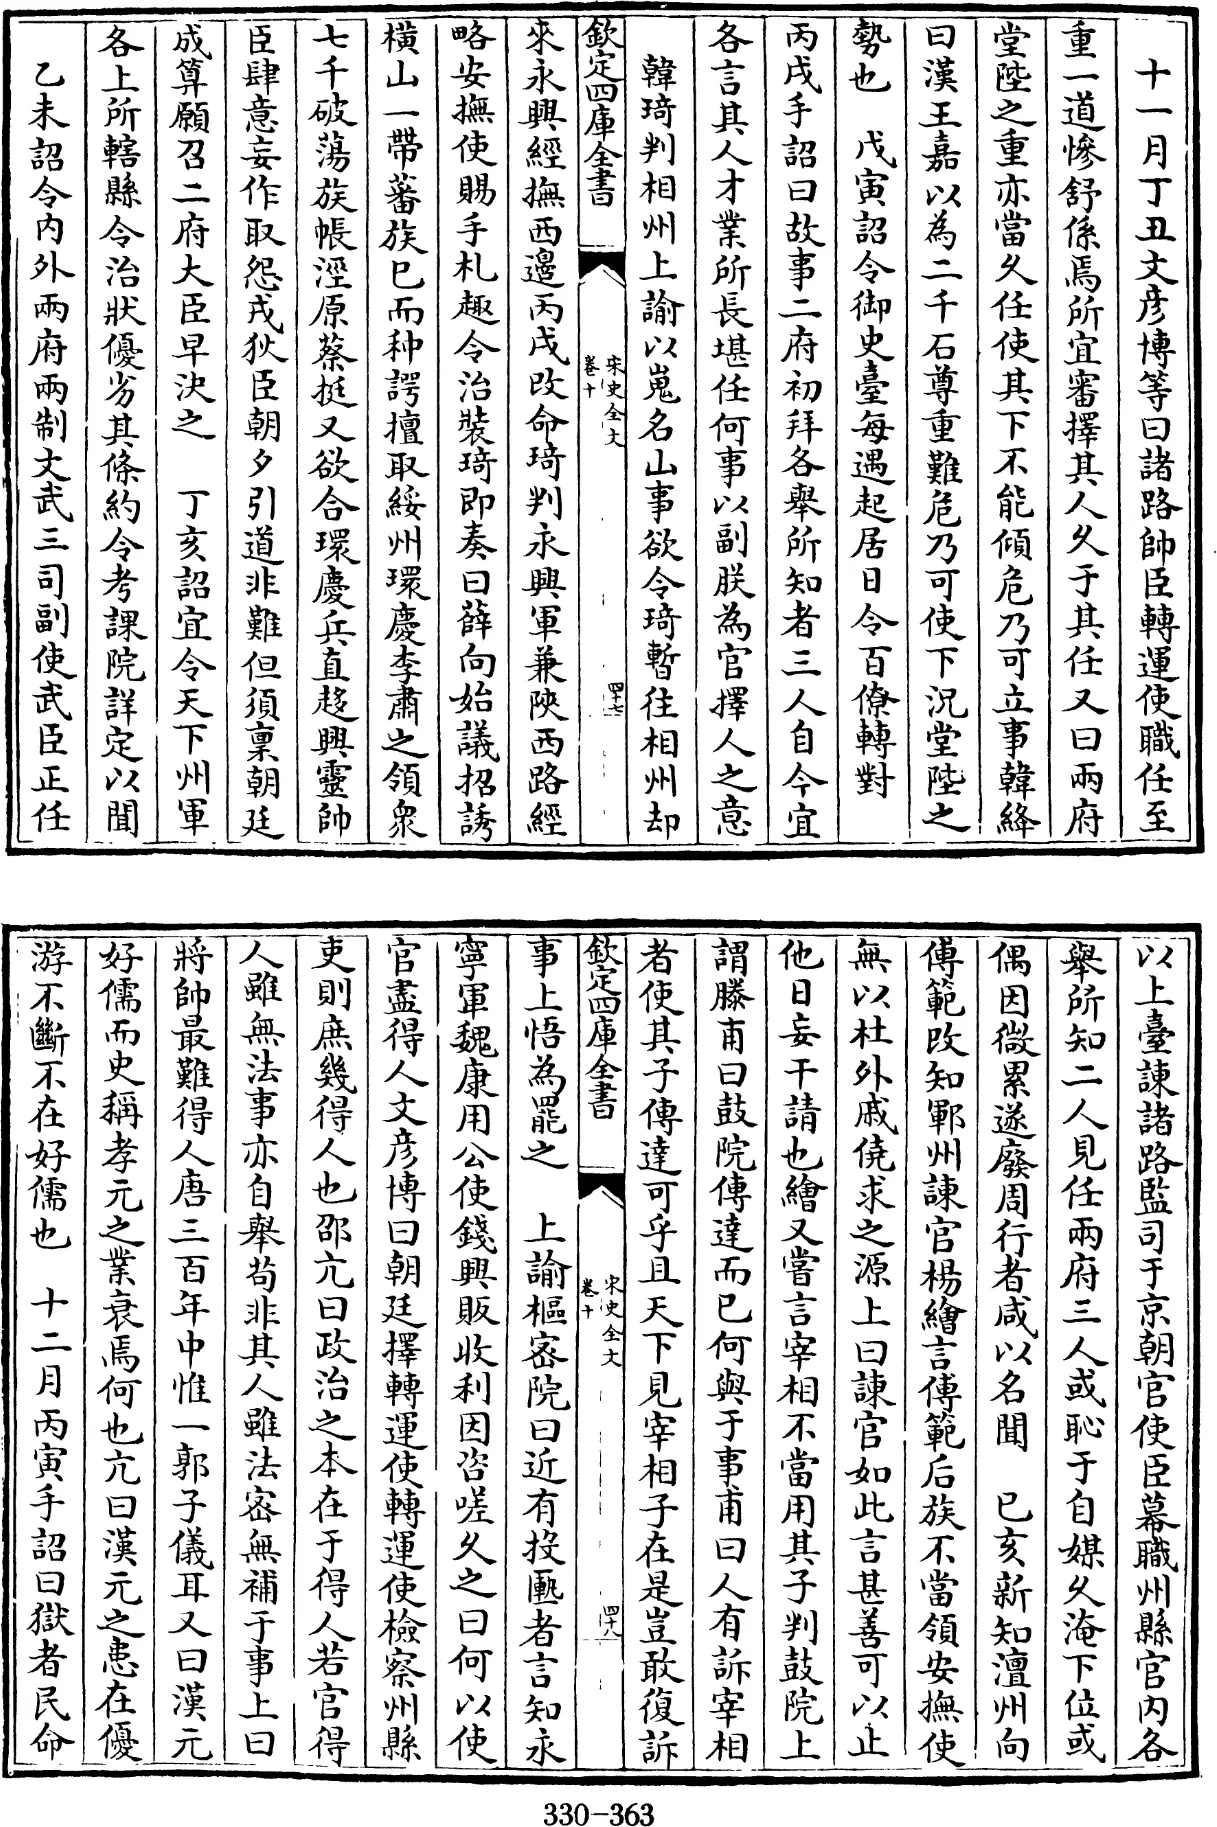 十一月丁丑文彦博等曰諸路帥臣轉運使職任至
重一道慘舒係焉所宜審擇其人久于其任又曰兩府
堂陛之重亦當久任使其下不能傾危乃可立事韓絳
曰漢王嘉以為二千石尊重難危乃可使下況堂陛之
勢也　戊寅詔令御史臺每遇起居日令百僚轉對
丙戌手詔曰故事二府初拜各舉所知者三人自今宜
各言其人才業所長堪任何事以副朕為官擇人之意
韓琦判相州上諭以嵬名山事欲令琦暫往相州却
欽定四庫全書
宋史全文
卷十
四十七
來永興經撫西邊丙戌改命琦判永興軍兼陝西路經
略安撫使賜手札趣令治裝琦即奏曰薛向始議招誘
橫山一帶蕃族已而种諤擅取綏州環慶李肅之領衆
七千破蕩族帳涇原蔡挺又欲合環慶兵直趍興靈帥
臣肆意妄作取怨戎狄臣朝夕引道非難但須稟朝廷
成算願召二府大臣早決之　丁亥詔宜令天下州軍
各上所轄縣令治狀優劣其條約令考課院詳定以聞
乙未詔令内外兩府兩制文武三司副使武臣正任
以上臺諫諸路監司于京朝官使臣幕職州縣官内各
舉所知二人見任兩府三人或恥于自媒久淹下位或
偶因微累遂廢周行者咸以名聞　已亥新知澶州向
傅範改知鄆州諫官楊繪言傅範后族不當領安撫使
無以杜外戚僥求之源上曰諫官如此言甚善可以止
他日妄干請也繪又嘗言宰相不當用其子判鼓院上
謂滕甫曰鼓院傳達而已何與于事甫曰人有訴宰相
者使其子傳達可乎且天下見宰相子在是豈敢復訴
欽定四庫全書
宋史全文
卷十
四十八
事上悟為罷之　上諭樞宻院曰近有投匭者言知永
寧軍魏康用公使錢興販收利因咨嗟久之曰何以使
官盡得人文彦博曰朝廷擇轉運使轉運使檢察州縣
吏則庶幾得人也邵亢曰政治之本在于得人若官得
人雖無法事亦自舉茍非其人雖法宻無補于事上曰
將帥最難得人唐三百年中惟一郭子儀耳又曰漢元
好儒而史稱孝元之業衰焉何也亢曰漢元之患在優
游不斷不在好儒也　十二月丙寅手詔曰獄者民命
330-363